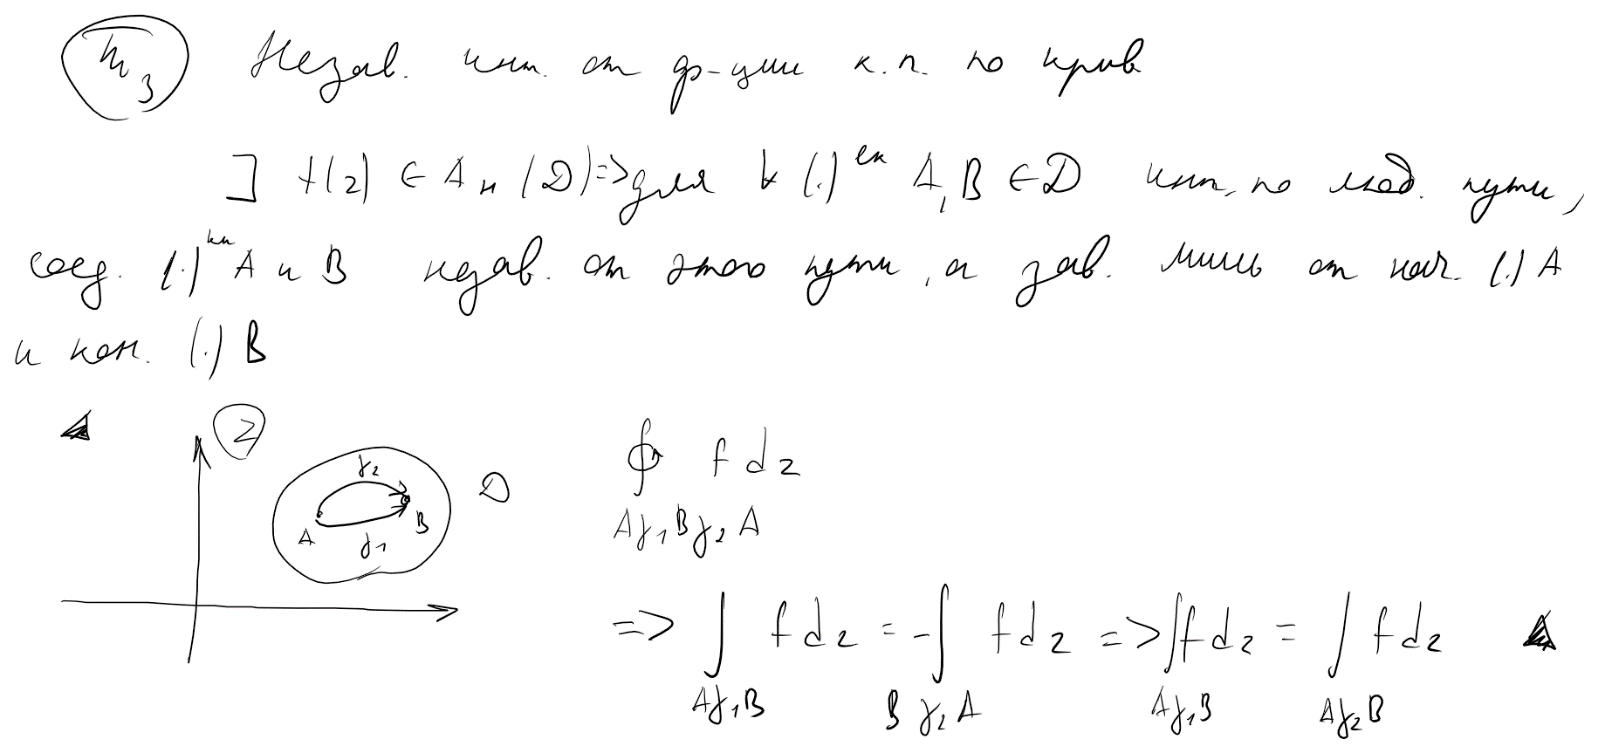 Th 3 Незав. инт. от ф-ции к.п. по крив
] f(z) ∈ Aн (D) => для ∀ (.)ек A, B ∈ D инт. по люб. пути,
соед. (.)ки A и B незав. от этого пути, а зав. лишь от нач. (.) A
и кон. (.) B
Z
γ₂
D
A
B
γ₁
∮ f dz
Aγ₁Bγ₂A
=> ∫ f dz = -∫ f dz => ∫ f dz = ∫ f dz
Aγ₁B Bγ₂A Aγ₁B Aγ₂B